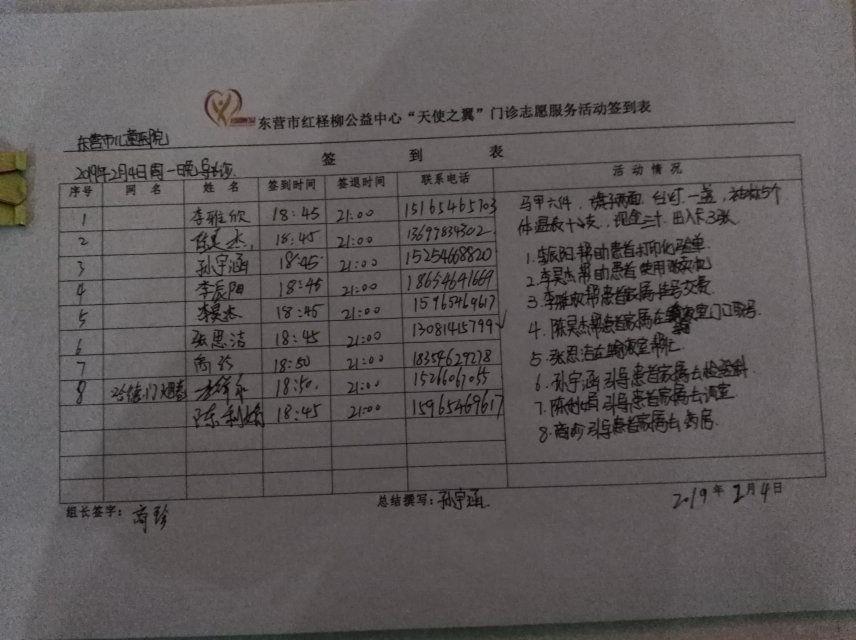 东营市红柽柳公益中心“天使之翼”门诊志愿服务活动签到表
东营市儿童医院
签 到 表
2019年2月4日周一晚导诊
序号 网名 姓名 签到时间 签退时间 联系电话 活动情况
1 李雅欣 18:45 21:00 15165465703
2 陈昊杰 18:45 21:00 13697834302
3 孙宇涵 18:45 21:00 15254668820
4 李辰阳 18:45 21:00 18654641669
5 李昊杰 18:45 21:00 15965469617
6 张思洁 18:45 21:00 13081415799
7 商珍 18:50 21:00 18354629278
8 18:50 21:00 15266067055
陈利娟 18:45 21:00 15965469617
马甲六件,旗子两面,一盖,袖标5个
体温表十支,现金三十,出入卡3张
1.李辰阳帮助患者打印化验单
2.李昊杰帮助患者使用
3.李雅欣帮患者家属挂号交费
4.陈昊杰帮患者家属在输液室门口取号
5.张思洁在输液室帮忙
6.孙宇涵引导患者家属去检验科
7.陈利娟引导患者家属去调室
8.商珍引导患者家属去药房
组长签字:商珍
总结撰写:孙宇涵
2019年2月4日